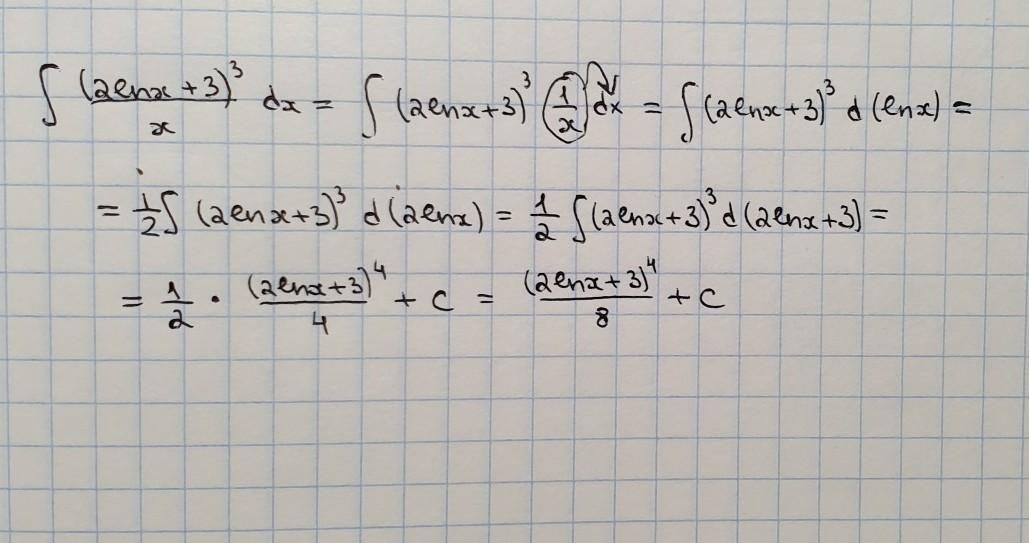 ∫ (2lnx+3)³/x dx = ∫ (2lnx+3)³ (1/x) dx = ∫(2lnx+3)³ d(lnx) =
= 1/2 ∫ (2lnx+3)³ d(2lnx) = 1/2 ∫(2lnx+3)³ d(2lnx+3) =
= 1/2 · (2lnx+3)⁴/4 + C = (2lnx+3)⁴/8 + C